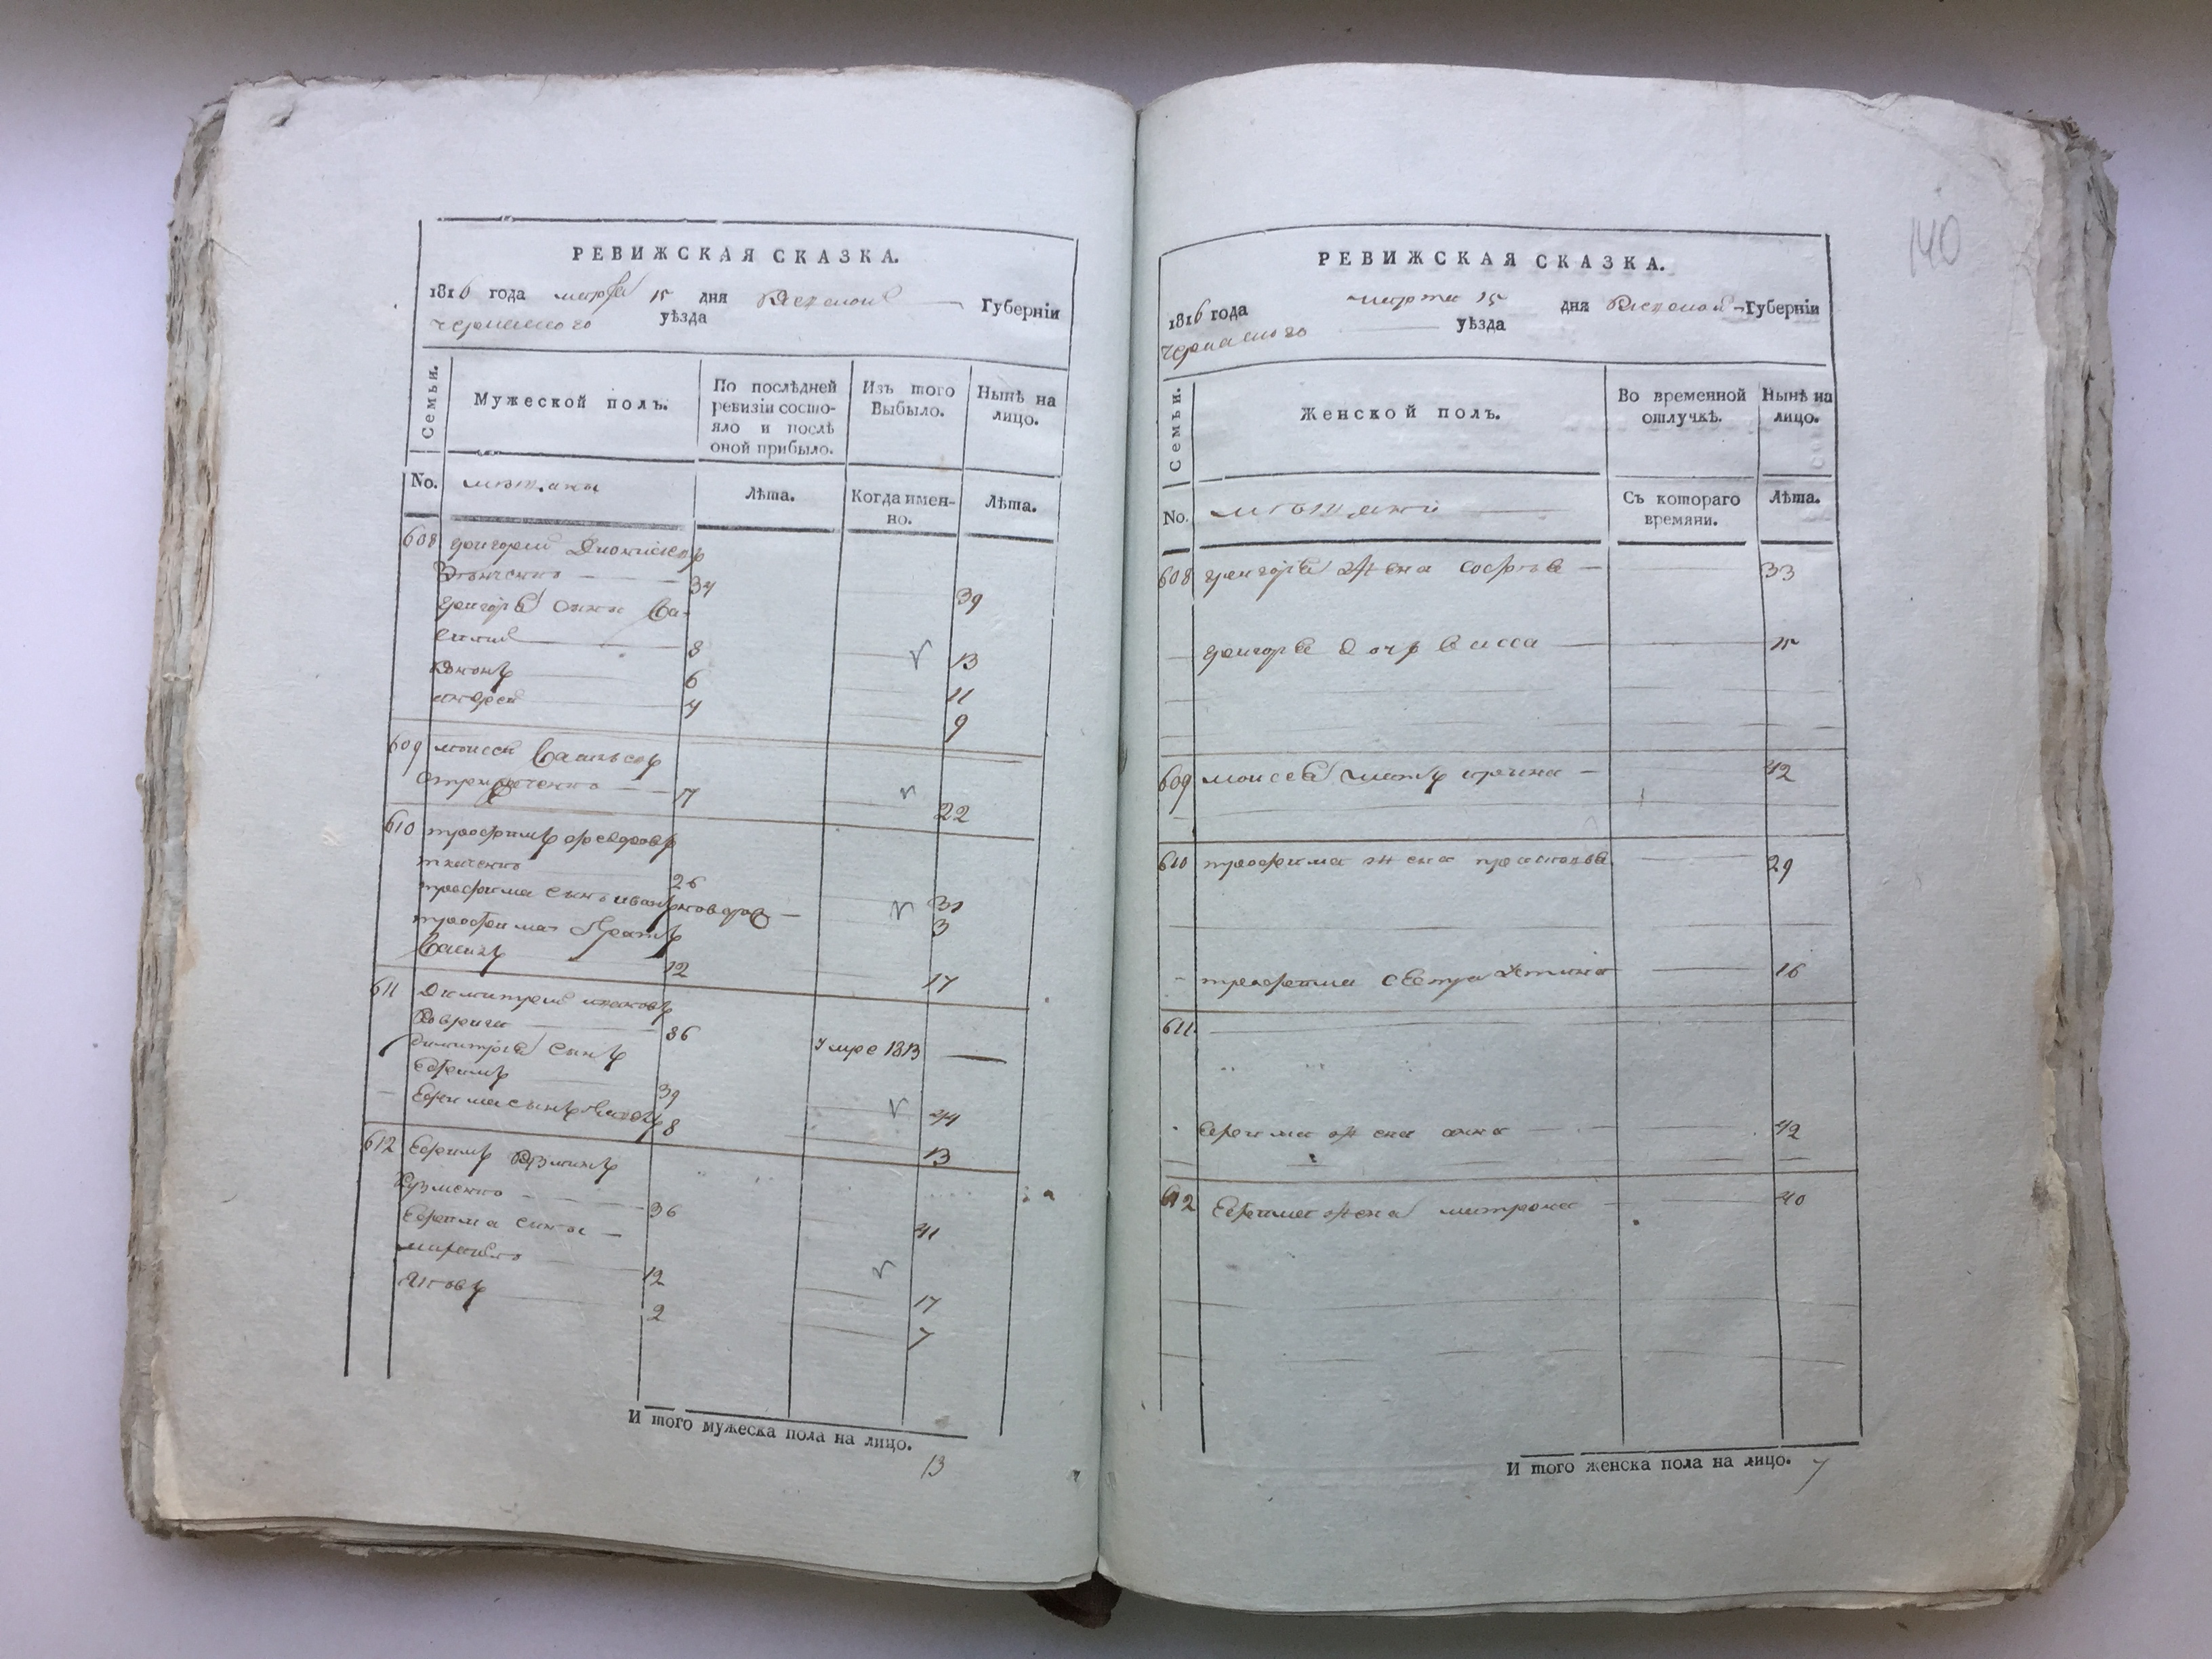 РЕВИЖСКАЯ СКАЗКА.
1816 года марта 15 дня Киевской Губернїи
Черкаского уѣзда
Семьи.
Мужеской полъ.
По послѣдней ревизїи состояло и послѣ оной прибыло.
Изъ того Выбыло.
Нынѣ на лицо.
No.
мѣщане
Лѣта.
Когда именно.
Лѣта.
608 Григорий Дионисовъ
34 39
Григорія сыны Ва-
силий 8 13
6 11
андрей 4 9
609 моисей Васильевъ
17 22
610 трофимъ федоровъ
ткаченко 26 31
трофима сынъ иванъ новорож 3
трофима братъ
12 17
611 Димитрий ивановъ
86 умре 1813
Димитрія сынъ
Ефимъ 39 44
Ефима сынъ 8 13
612 Ефимъ Кузминъ
Кузменко 36 41
Ефима сыны
михайло 12 17
Яковъ 2 7
И того мужеска пола на лицо.
13
140
РЕВИЖСКАЯ СКАЗКА.
1816 года марта 15 дня Киевской Губернїи
Черкаского уѣзда
Семьи.
Женской полъ.
Во временной отлучкѣ.
Нынѣ на лицо.
No.
мѣщане
Съ котораго времяни.
Лѣта.
608 Григорія жена Софья 33
Григорія дочь Васса 15
609 моисея мать ирина 42
610 трофима жена 29
трофима сестра Устина 16
611
Ефима жена анна 42
612 Ефима жена матрона 40
И того женска пола на лицо. 7